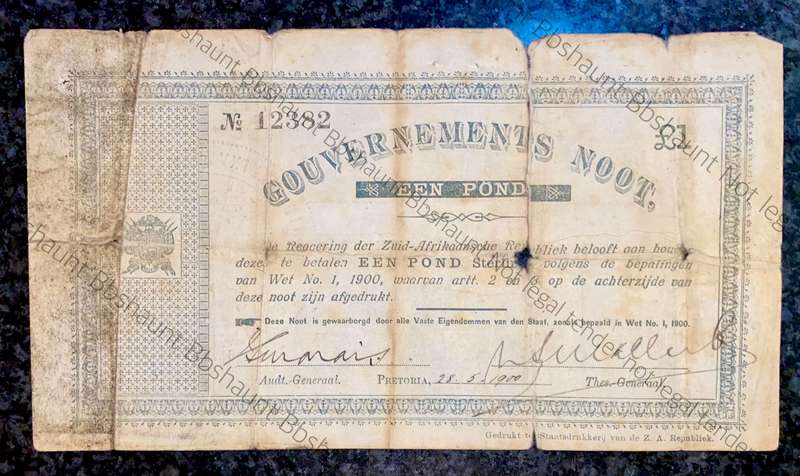 № 12382
£1
GOUVERNEMENTS NOOT,
EEN POND
de Regeering der Zuid-Afrikaansche Republiek belooft aan
deze te betalen EEN POND volgens de bepalingen
van Wet No. 1, 1900, waarvan artt. 2 en op de achterzijde van
deze noot zijn afgedrukt.
Deze Noot is gewaarborgd door alle Vaste Eigendommen van den Staat, zooals bepaald in Wet No. 1, 1900.
Audt.-Generaal. PRETORIA, 28.5.1900 Thes.-Generaal
Gedrukt ter Staatsdrukkerij van de Z. A. Republiek.
Bbshaunt Bbshaunt Bbshaunt Not legal tender not legal tender